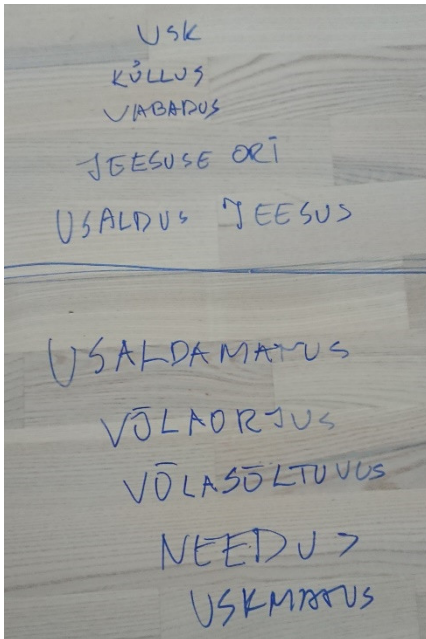 USK
KÜLLUS
VABADUS
JEESUSE ORI
USALDUS JEESUS
USALDAMATUS
VÕLAORJUS
VÕLASÕLTUVUS
NEEDUS
USKMATUS